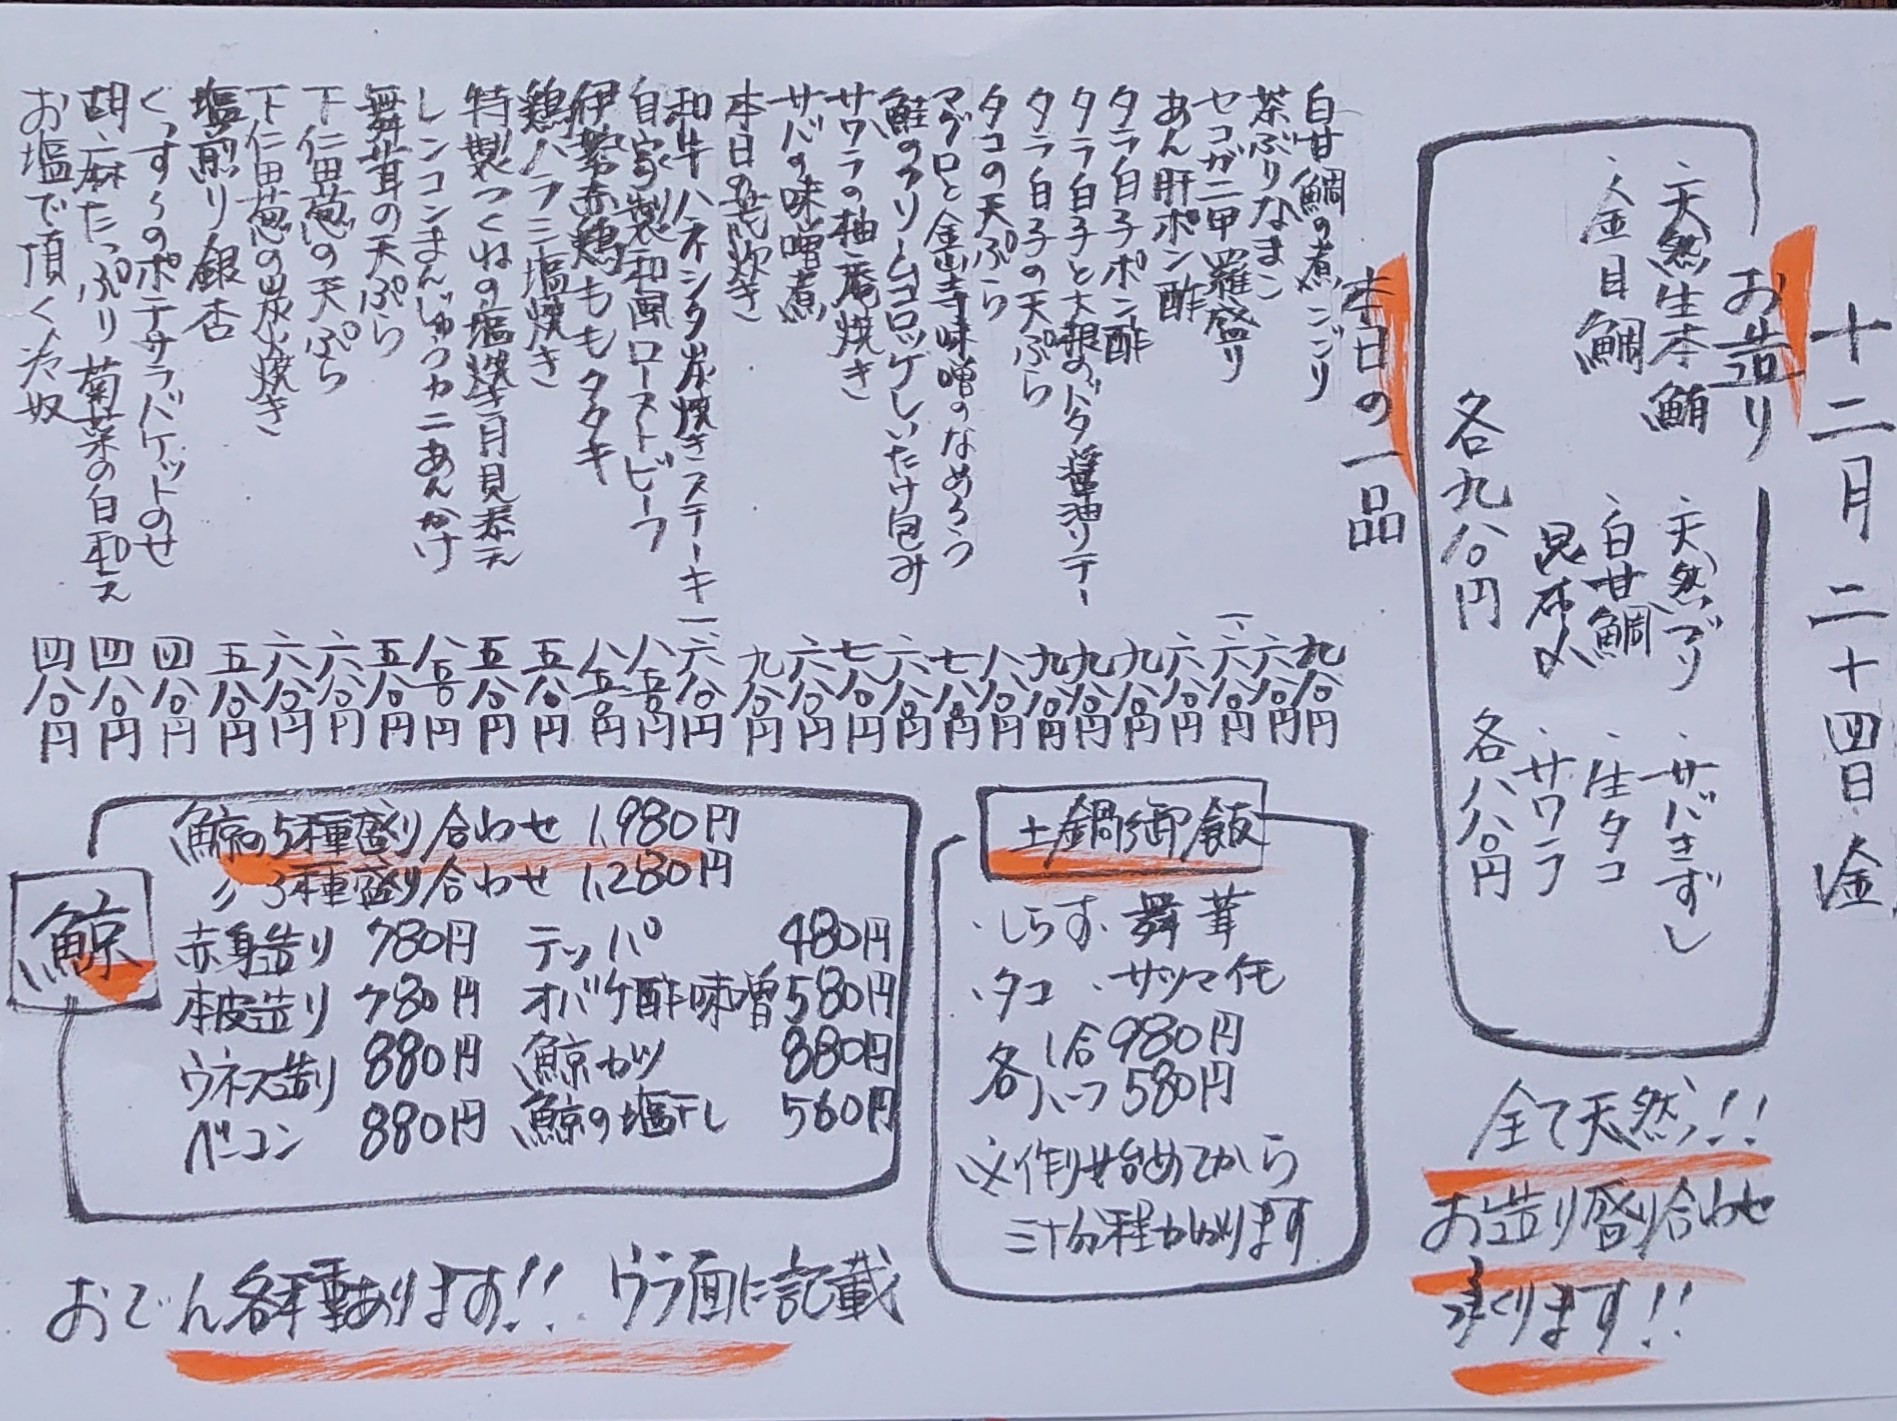 十二月二十四日金
お造り
・天然生本鮪
・天然ブリ
・サバきずし
・金目鯛
・白甘鯛昆布〆
・生タコ
・サワラ
各九八〇円
各八八〇円
全て天然!!
お造り盛り合わせ
承ります!!
本日の一品
白甘鯛の煮こごり 九八〇円
茶ぶりなまこ 六八〇円
セコガニ甲羅盛り 一、六八〇円
あん肝ポン酢 六八〇円
タラ白子ポン酢 九八〇円
タラ白子と大根のバター醤油ソテー 九八〇円
タラ白子の天ぷら 九八〇円
タコの天ぷら 八八〇円
マグロと金山寺味噌のなめろう 七八〇円
鮭のクリームコロッケしいたけ包み 六八〇円
サワラの柚庵焼き 七八〇円
サバの味噌煮 六八〇円
本日の荒炊き 九八〇円
和牛ハネシタ炭焼きステーキ 一六八〇円
自家製和風ローストビーフ 八五〇円
伊勢赤鶏ももタタキ 八五〇円
鶏ハラミ塩焼き 五八〇円
特製つくねの塩焼き月見添え 五八〇円
レンコンまんじゅうカニあんかけ 八五〇円
舞茸の天ぷら 五八〇円
下仁田葱の天ぷら 六八〇円
下仁田葱の炭火焼き 六八〇円
塩煎り銀杏 五八〇円
くっすぅのポテサラバケットのせ 四八〇円
胡麻たっぷり菊菜の白和え 四八〇円
お塩で頂く冷奴 四八〇円
土鍋御飯
・しらす・舞茸
・タコ・サツマイモ
各1合 980円
各ハーフ 580円
※作り始めてから
三十分程かかります
鯨
鯨の5種盛り合わせ 1,980円
〃 3種盛り合わせ 1,280円
赤身造り 780円 テッパ 480円
本皮造り 780円 オバケ酢味噌 580円
ウネス造り 880円 鯨カツ 880円
ベーコン 880円 鯨の塩干し 560円
おでん各種あります!! ウラ面に記載